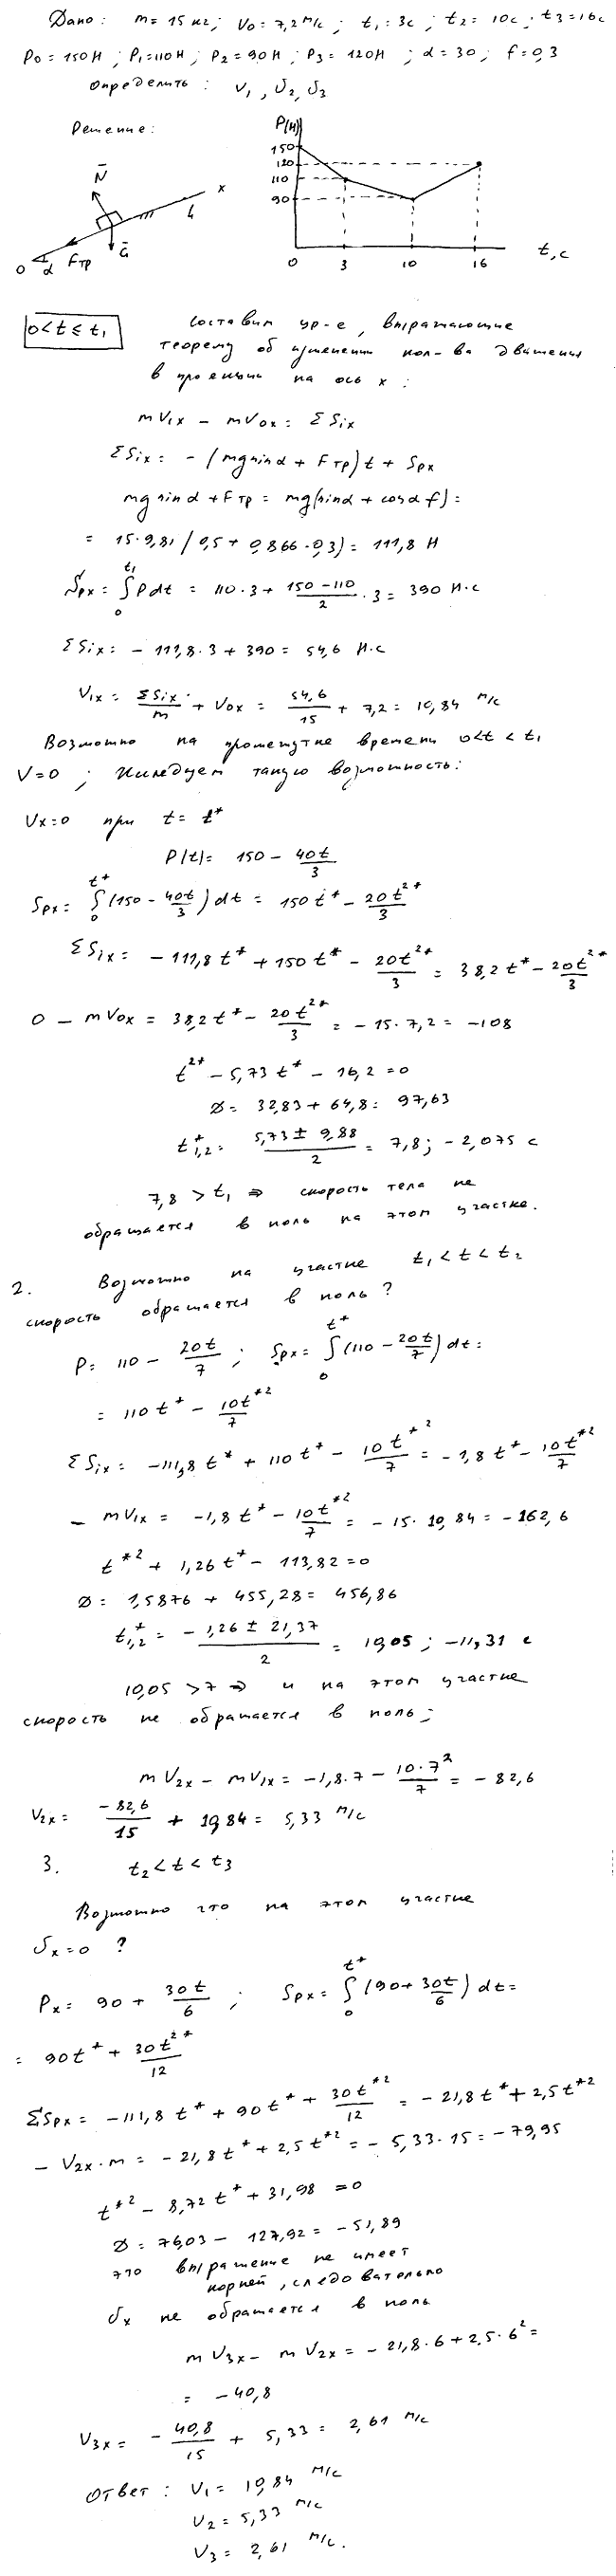 Дано: m = 15 кг; V0 = 7,2 м/с; t1 = 3с; t2 = 10с; t3 = 16с
P0 = 150Н; P1 = 110Н; P2 = 90Н; P3 = 120Н; α = 30; f = 0,3
Определить: V1, V2, V3
Решение:
P(Н)
150
120
110
90
0 3 10 16 t, с
N̄
x
L
Fтр
Ḡ
O α
0 < t ≤ t1
Составим ур-е, выражающие
теорему об изменении кол-ва движения
в проекции на ось x:
mV1x − mV0x = ΣSix
ΣSix = −(mg sinα + Fтр)t + Spx
mg sinα + Fтр = mg(sinα + cosα f) =
= 15·9,81(0,5 + 0,866·0,3) = 111,8 Н
Spx = ∫₀^t1 Pdt = 110·3 + (150−110)/2 · 3 = 390 Н·с
ΣSix = −111,8·3 + 390 = 54,6 Н·с
V1x = ΣSix/m + V0x = 54,6/15 + 7,2 = 10,84 м/с
Возможно на промежутке времени 0<t<t1
V=0; Исследуем такую возможность:
Vx=0 при t = t*
P(t) = 150 − 40t/3
Spx = ∫₀^t* (150 − 40t/3)dt = 150t* − 20t²*/3
ΣSix = −111,8t* + 150t* − 20t²*/3 = 38,2t* − 20t²*/3
0 − mV0x = 38,2t* − 20t²*/3 = −15·7,2 = −108
t²* − 5,73t* − 16,2 = 0
D = 32,83 + 64,8 = 97,63
t*1,2 = (5,73 ± 9,88)/2 = 7,8; −2,075 с
7,8 > t1 ⇒ скорость тела не
обращается в ноль на этом участке.
2. Возможно на участке t1 < t < t2
скорость обращается в ноль?
P = 110 − 20t/7; Spx = ∫₀^t* (110 − 20t/7)dt =
= 110t* − 10t*²/7
ΣSix = −111,8t* + 110t* − 10t*²/7 = −1,8t* − 10t*²/7
− mV1x = −1,8t* − 10t*²/7 = −15·10,84 = −162,6
t*² + 1,26t* − 113,82 = 0
D = 1,5876 + 455,28 = 456,86
t*1,2 = (−1,26 ± 21,37)/2 = 10,05; −11,31 с
10,05 > 7 ⇒ и на этом участке
скорость не обращается в ноль;
mV2x − mV1x = −1,8·7 − 10·7²/7 = −82,6
V2x = −82,6/15 + 10,84 = 5,33 м/с
3. t2 < t < t3
Возможно что на этом участке
Vx = 0 ?
Px = 90 + 30t/6; Spx = ∫₀^t* (90 + 30t/6)dt =
= 90t* + 30t²*/12
ΣSpx = −111,8t* + 90t* + 30t*²/12 = −21,8t* + 2,5t*²
− V2x·m = −21,8t* + 2,5t*² = −5,33·15 = −79,95
t*² − 8,72t* + 31,98 = 0
D = 76,03 − 127,92 = −51,89
это выражение не имеет
корней, следовательно
Vx не обращается в ноль
mV3x − mV2x = −21,8·6 + 2,5·6² =
= −40,8
V3x = −40,8/15 + 5,33 = 2,61 м/с
Ответ: V1 = 10,84 м/с
V2 = 5,33 м/с
V3 = 2,61 м/с.